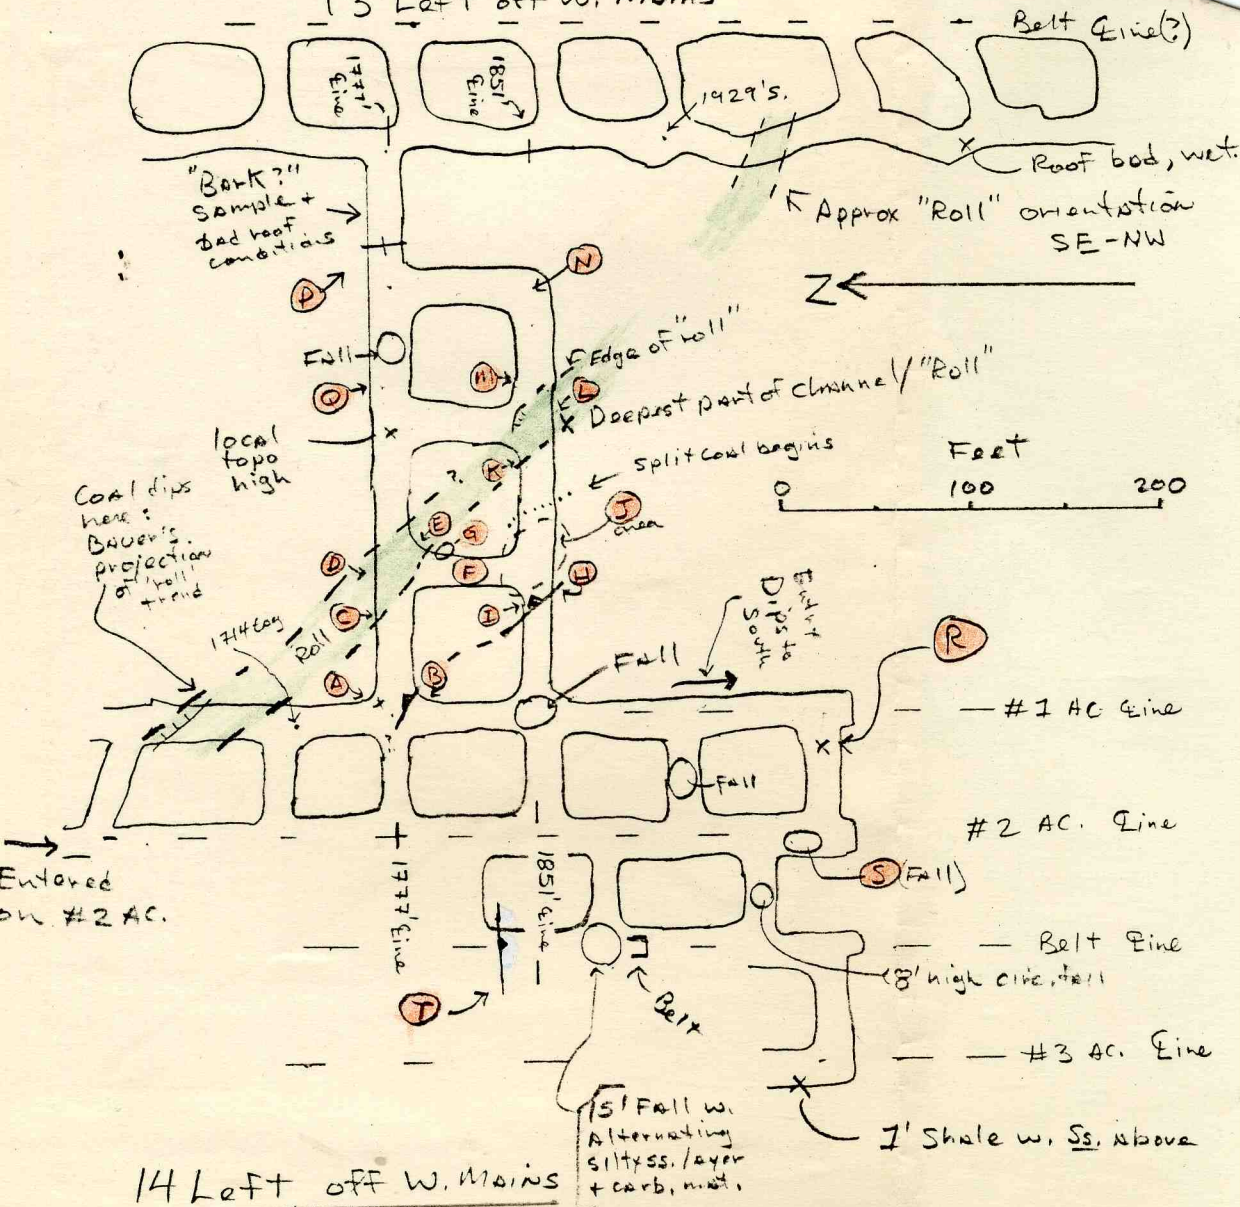 13 Left off W. Mains
Belt ℄ine(?)
1777'
℄ine
1851'
℄ine
1929's.
Roof bad, wet.
"Bark?"
sample +
bad roof
conditions
Approx "Roll" orientation
SE-NW
N
P
Z
Fall
Edge of "roll"
M
L
Q
Deepest part of channel/"Roll"
local
topo
high
K
?
split coal begins
Feet
0 100 200
Coal dips
here:
Bauer's
projection
of 'roll'
trend
J
area
E
G
D
F
H
I
C
1714 tag
Roll
A
B
Fall
Dips to
South
R
#1 AC ℄ine
Fall
#2 AC. ℄ine
Entered
on #2 AC.
1777' ℄ine
1851' ℄ine
S (Fall)
Belt ℄ine
8' high circ. fall
T
Belt
#3 AC. ℄ine
15' Fall w.
Alternating
silty ss. layer
+ carb. mat.
1' Shale w. Ss. above
14 Left off W. Mains